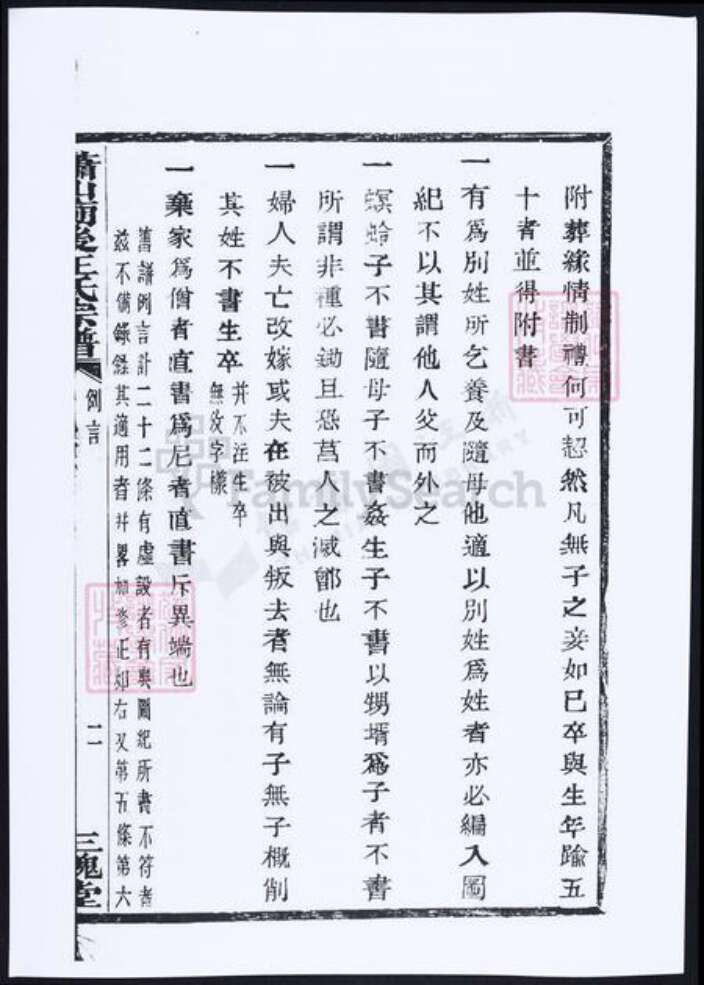 附葬緣情制禮何可恝然凡無子之妾如已卒與生年踰五
十者並得附書
一有爲別姓所乞養及隨母他適以別姓爲姓者亦必編入圖
紀不以其謂他人父而外之
一螟蛉子不書隨母子不書姦生子不書以甥壻爲子者不書
所謂非種必鋤且恐莒人之滅鄫也
一婦人夫亡改嫁或夫在被出與叛去者無論有子無子概削
其姓不書生卒
并不注生卒
無攷字樣
一棄家爲僧者直書爲尼者直書斥異端也
舊譜例言計二十二條有虛設者有與圖紀所書不符者
茲不備錄錄其適用者并畧加修正如右又第五條第六
蕭山前後王氏宗譜
例言
二
三槐堂
FamilySearch